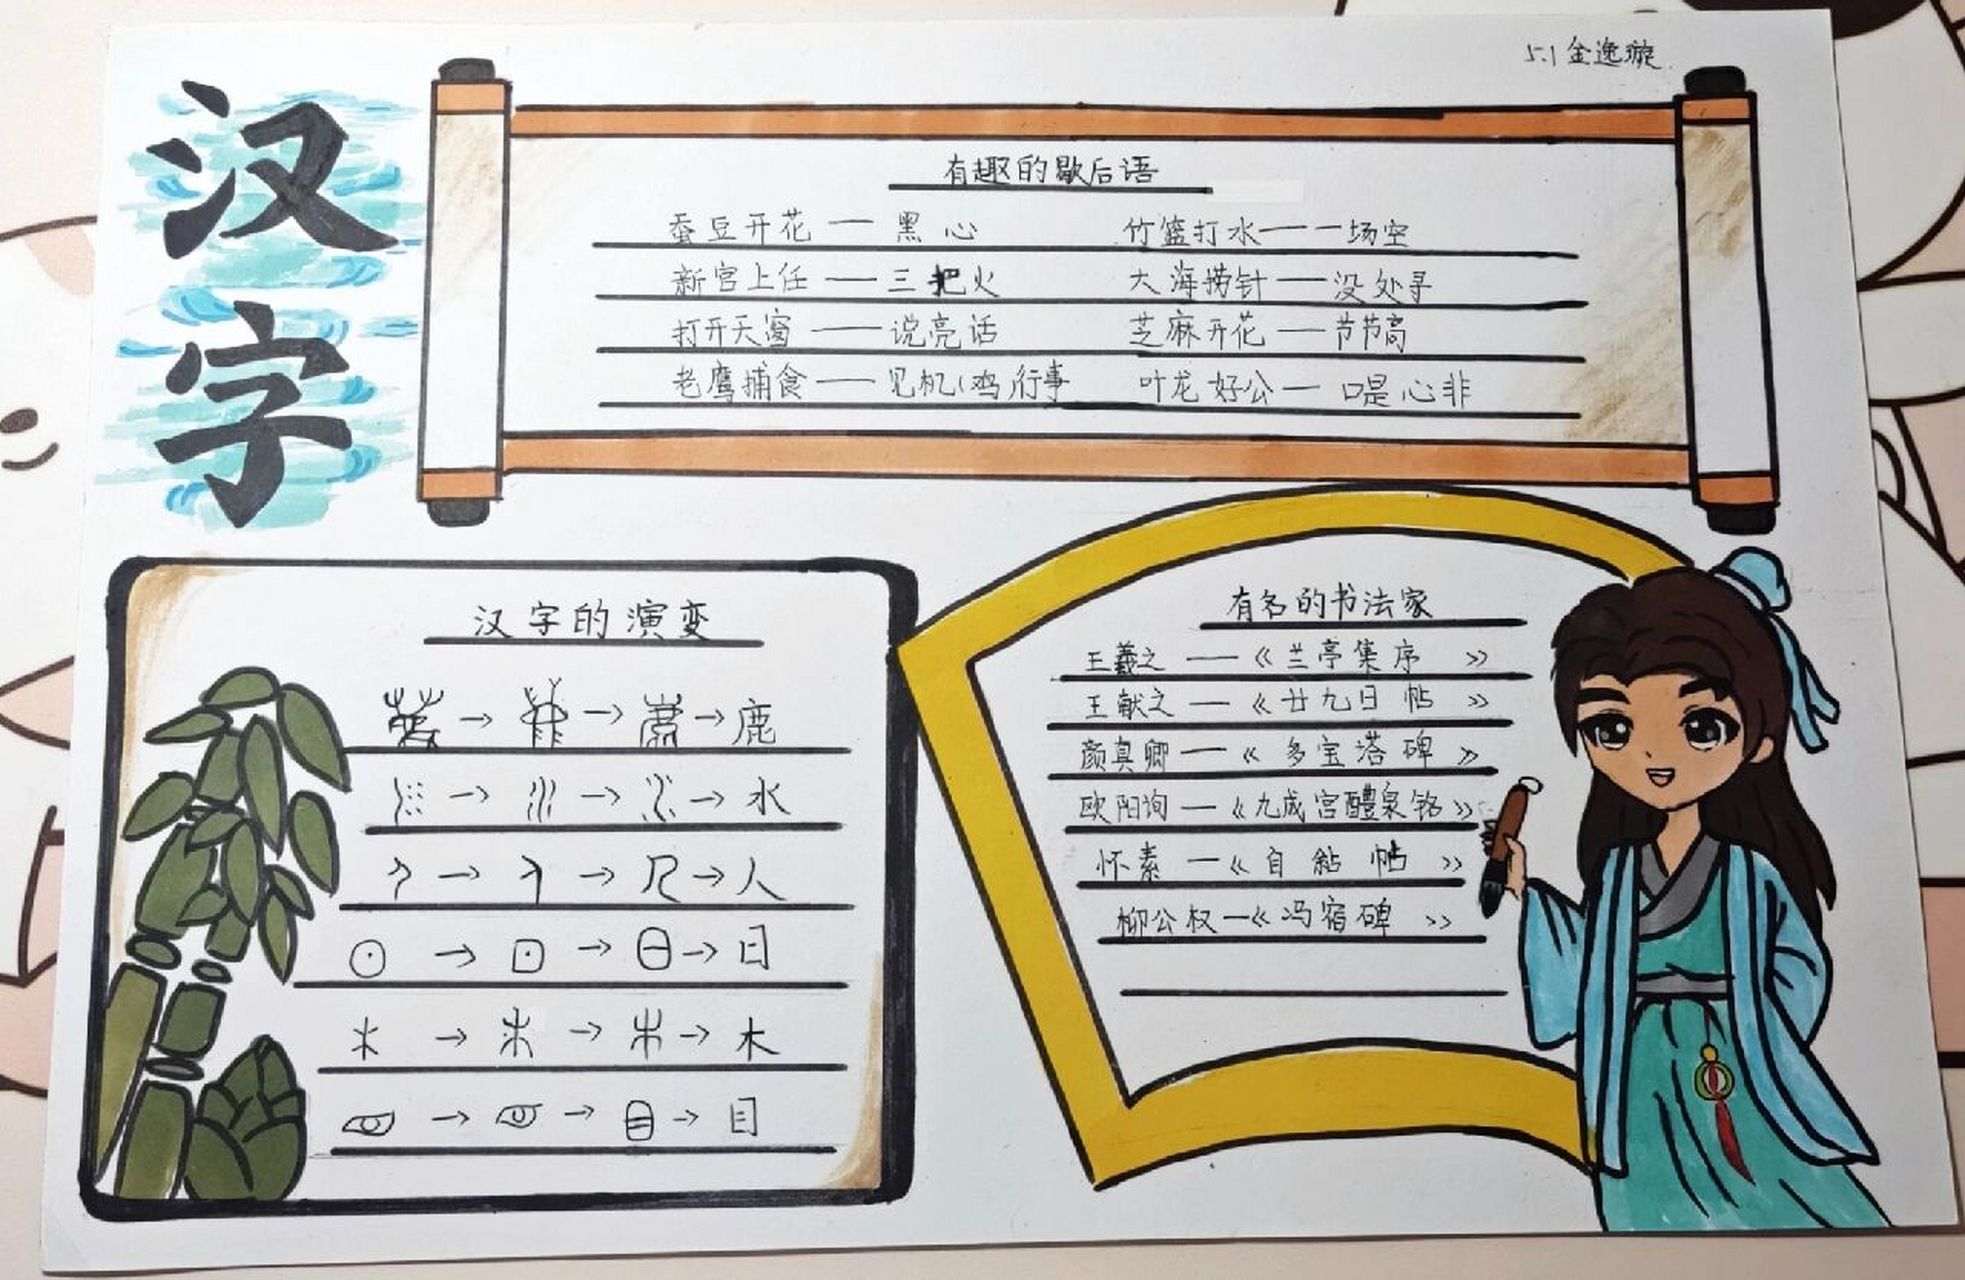 汉字
5.1 金逸璇
有趣的歇后语
蚕豆开花——黑心 竹篮打水——一场空
新官上任——三把火 大海捞针——没处寻
打开天窗——说亮话 芝麻开花——节节高
老鹰捕食——见机(鸡)行事 叶龙好公—口是心非
汉字的演变
→ → → 鹿
→ → → 水
→ → → 人
→ → → 日
→ → → 木
→ → → 目
有名的书法家
王羲之——《兰亭集序》
王献之——《廿九日帖》
颜真卿——《多宝塔碑》
欧阳询——《九成宫醴泉铭》
怀素—《自帖》
柳公权—《冯宿碑》